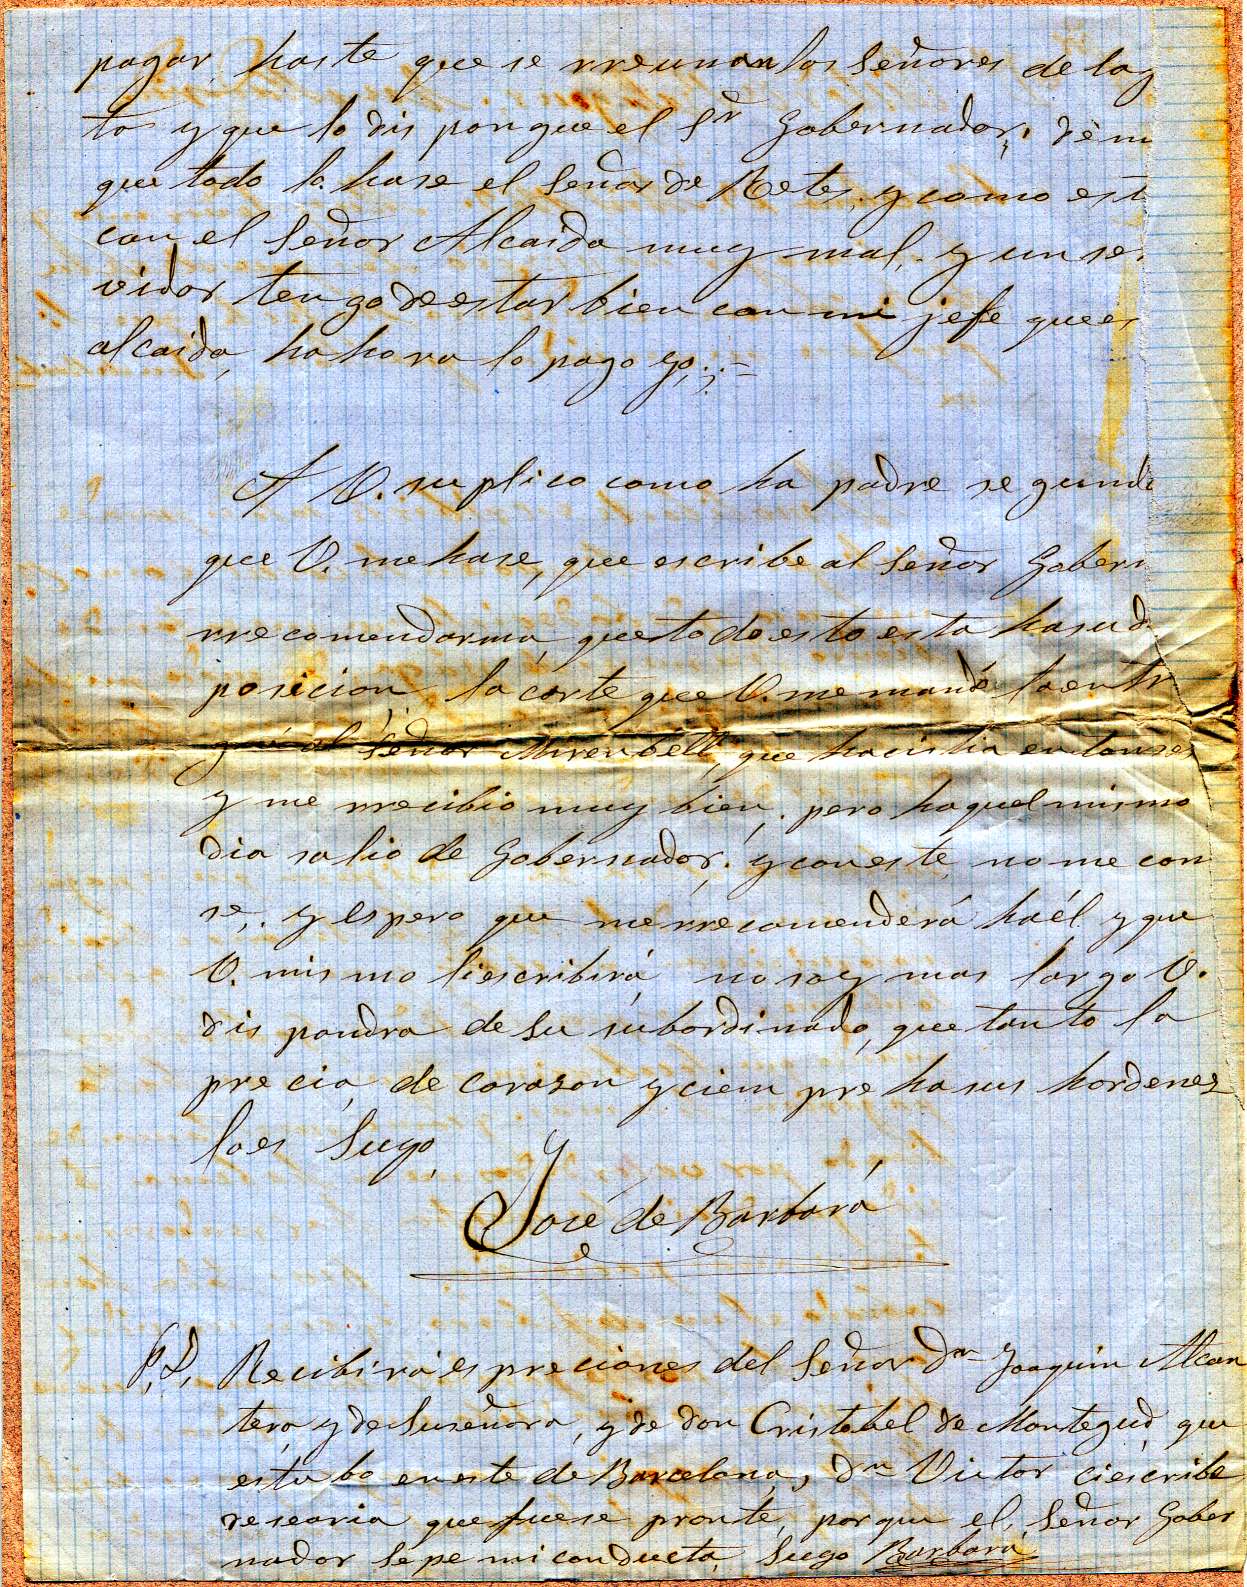 pagar, haste que se rreunan los Señores de la y
to y que lo dis pongue el Sr Gobernador, dem
que todo lo hase el Señor de Retes, y como est
con el Señor Alcaida muy mal, y un se
vidor tengo de estar bien con mi jefe que es
alcaida, ha hora lo pago yo;
A V. suplico como ha padre segund
que V. me hase, que escribe al Señor Gobern
rrecomendarma, que to do esto esta hasu d
posicion, la carte que V. me mandó la entr
gué al Señor Mirenbell, que hacistia entonses
y me rrecibio muy bien, pero haquel mismo
dia salio de Gobernador; y con este, no me con
se, y espero que me rrecomenderá haél y que
V. mismo liescribirá no soy mas largo V.
dis pondra de Su subordinado, que tanto la
precia, de corason y ciem pre ha sus hordenes
loes Sugo,
José de Barbará
P.D. Recibirá es preciones del Señor Dn Joaquin Alcan
tera, y de Suseñora, y de don Cristobel de Montegud, que
estubo en este de Barcelona, Dn Victor ciescribe
desearia que fuese pronte, porque el Señor Gober
nador sepe mi conducta, Sugo Barbará